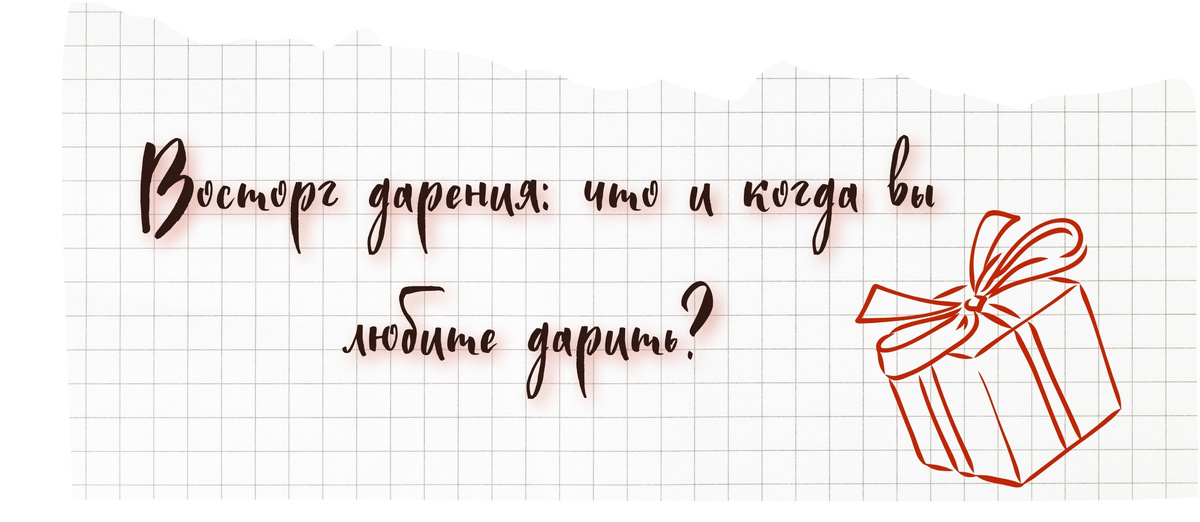 Восторг дарения: что и когда вы
любите дарить?